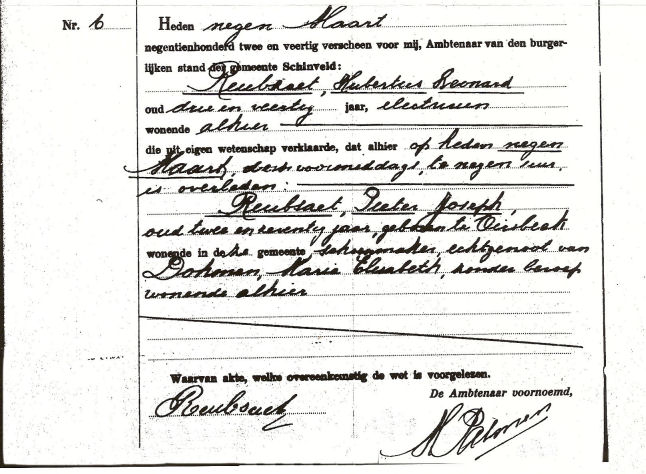 Nr. 6
Heden negen Maart
negentienhonderd twee en veertig verscheen voor mij, Ambtenaar van den burger-
lijken stand der gemeente Schinveld:
Reubsaet, Hubertus Leonard
oud drie en veertig jaar, electricien
wonende alhier
die uit eigen wetenschap verklaarde, dat alhier op heden negen
Maart, des voormiddags, te negen uur,
is overleden:
Reubsaet, Peeter Joseph,
oud twee en seventig jaar, geboren te Oirsbeek
wonende in deze gemeente schoenmaker, echtgenoot van
Dohmen, Maria Elisabeth, zonder beroep
wonende alhier
Waarvan akte, welke overeenkomstig de wet is voorgelezen.
De Ambtenaar voornoemd,
Reubsaet